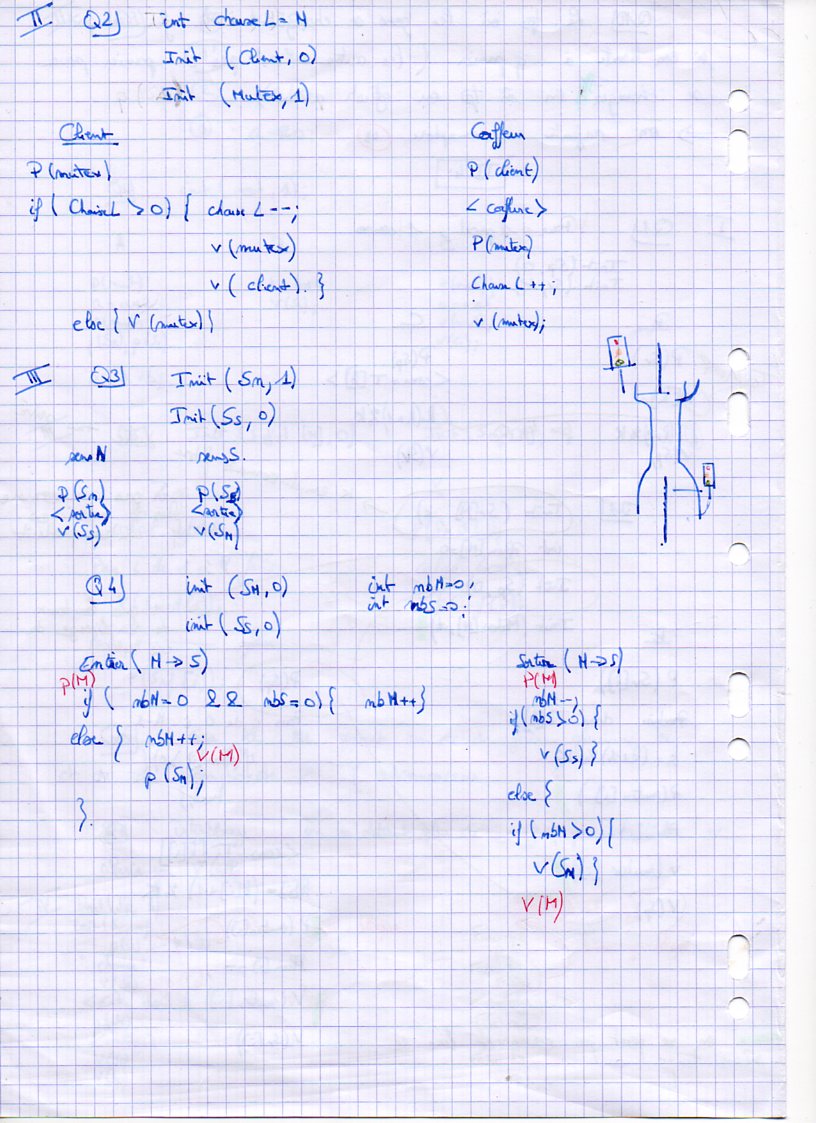 II Q2) int chaise L = N
Init (Client, 0)
Init (Mutex, 1)
Client
P(mutex)
if ( ChaiseL > 0) { chaise L --;
v (mutex)
v ( client). }
else { V (mutex) }
Coiffeur
P( client)
< coiffure >
P(mutex)
Chaise L ++ ;
v (mutex);
III Q3) Init ( Sn, 1)
Init ( Ss, 0)
sens N sens S.
P(Sn) P(Ss)
<sortie> <sortie>
V(Ss) V(SN)
Q4) init ( SN, 0) int nbN=0;
init ( Ss, 0) int nbS=0;
Entrer ( N -> S)
P(M)
if ( nbN=0 && nbS=0) { nbN++}
else { nbN++;
V(M)
P (SN);
}.
Sortir ( N -> S)
P(M)
nbN--;
if (nbS>0) {
V(Ss) }
else {
if (nbN>0) {
V(SN) }
V(M)